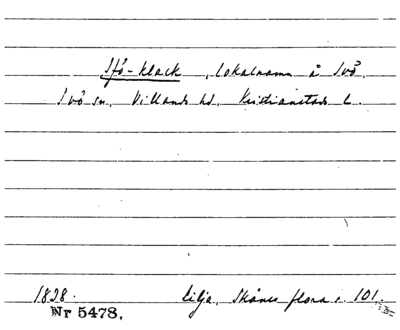 Ifö-klack, lokalnamn å Ivö.
Ivö sn, Villands hd, Kristianstads l.
1828. Lilja, Skånes flora s. 101.
Nr 5478.